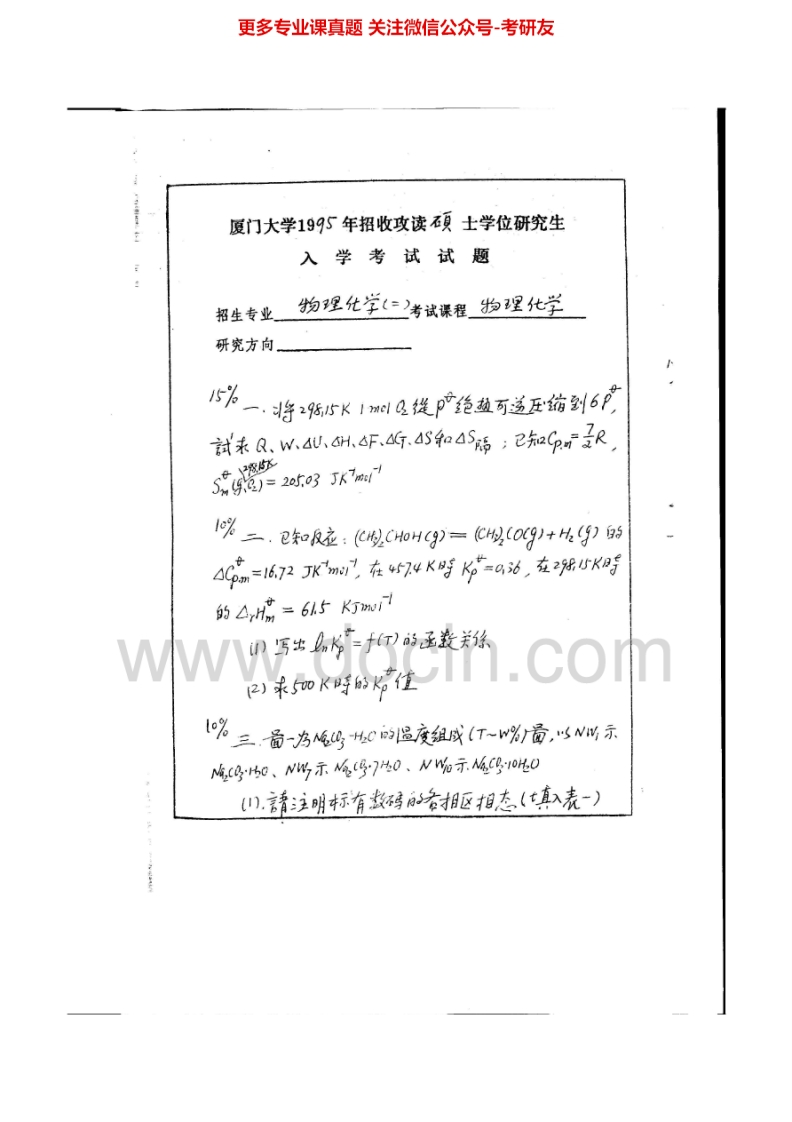 更多专业课真题 关注微信公众号-考研友
厦门大学1995年招收攻读硕士学位研究生
入学考试试题
招生专业 物理化学(二) 考试课程 物理化学
研究方向
15% 一. 将298.15K 1mol O₂從P^θ绝热可逆压缩到6P^θ,
試求Q、W、ΔU、ΔH、ΔF、ΔG、ΔS和ΔS隔；已知Cp.m=7/2R,
S_m^θ(g,O₂)(298.15K)=205.03 JK⁻¹mol⁻¹
10% 二. 已知反应：(CH₃)₂CHOH(g)=(CH₃)₂CO(g)+H₂(g)的
ΔCp.m^θ=16.72 JK⁻¹mol⁻¹, 在457.4K时Kp^θ=0.36, 在298.15K时
的ΔrHm^θ=61.5 KJmol⁻¹
(1) 写出lnKp^θ=f(T)的函数关係
(2) 求500K时的Kp^θ值
www.docin.com
10% 三. 畜一为Na₂CO₃-H₂O的温度组成(T~W%)畜,以NW₁示
Na₂CO₃·H₂O、NW₇示Na₂CO₃·7H₂O、NW₁₀示Na₂CO₃·10H₂O
(1).請注明标有数码的各相区相态(填入表一)